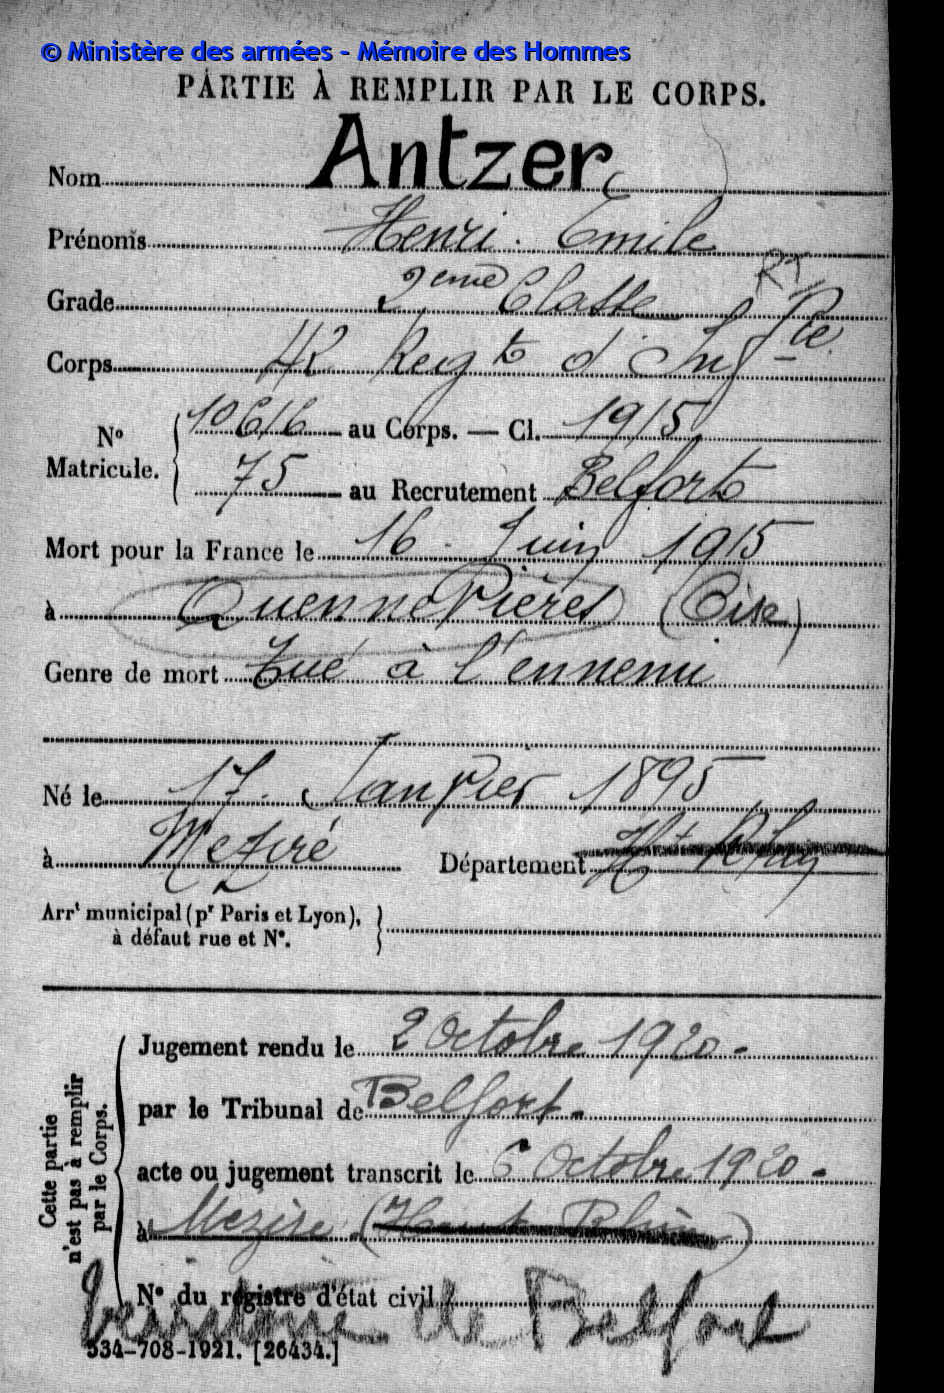 © Ministère des armées - Mémoire des Hommes
PARTIE À REMPLIR PAR LE CORPS.
Nom Antzer
Prénoms Henri. Emile
RI
Grade 2eme Classe
Corps 42 Regt d'Infie
No Matricule. { 10616 au Corps. — Cl. 1915
75 au Recrutement Belfort
Mort pour la France le 16 Juin 1915
à Quennevières (Oise)
Genre de mort Tué à l'ennemi
Né le 17. Janvier 1895
à Meziré Département Ht Rhin
Arrt municipal (pr Paris et Lyon),
à défaut rue et No.
Cette partie
n'est pas à remplir
par le Corps.
Jugement rendu le 2 Octobre 1920 -
par le Tribunal de Belfort -
acte ou jugement transcrit le 6 Octobre 1920 -
à Mezire (Haut Rhin)
No du registre d'état civil
territoire de Belfort
534-708-1921. [26434.]